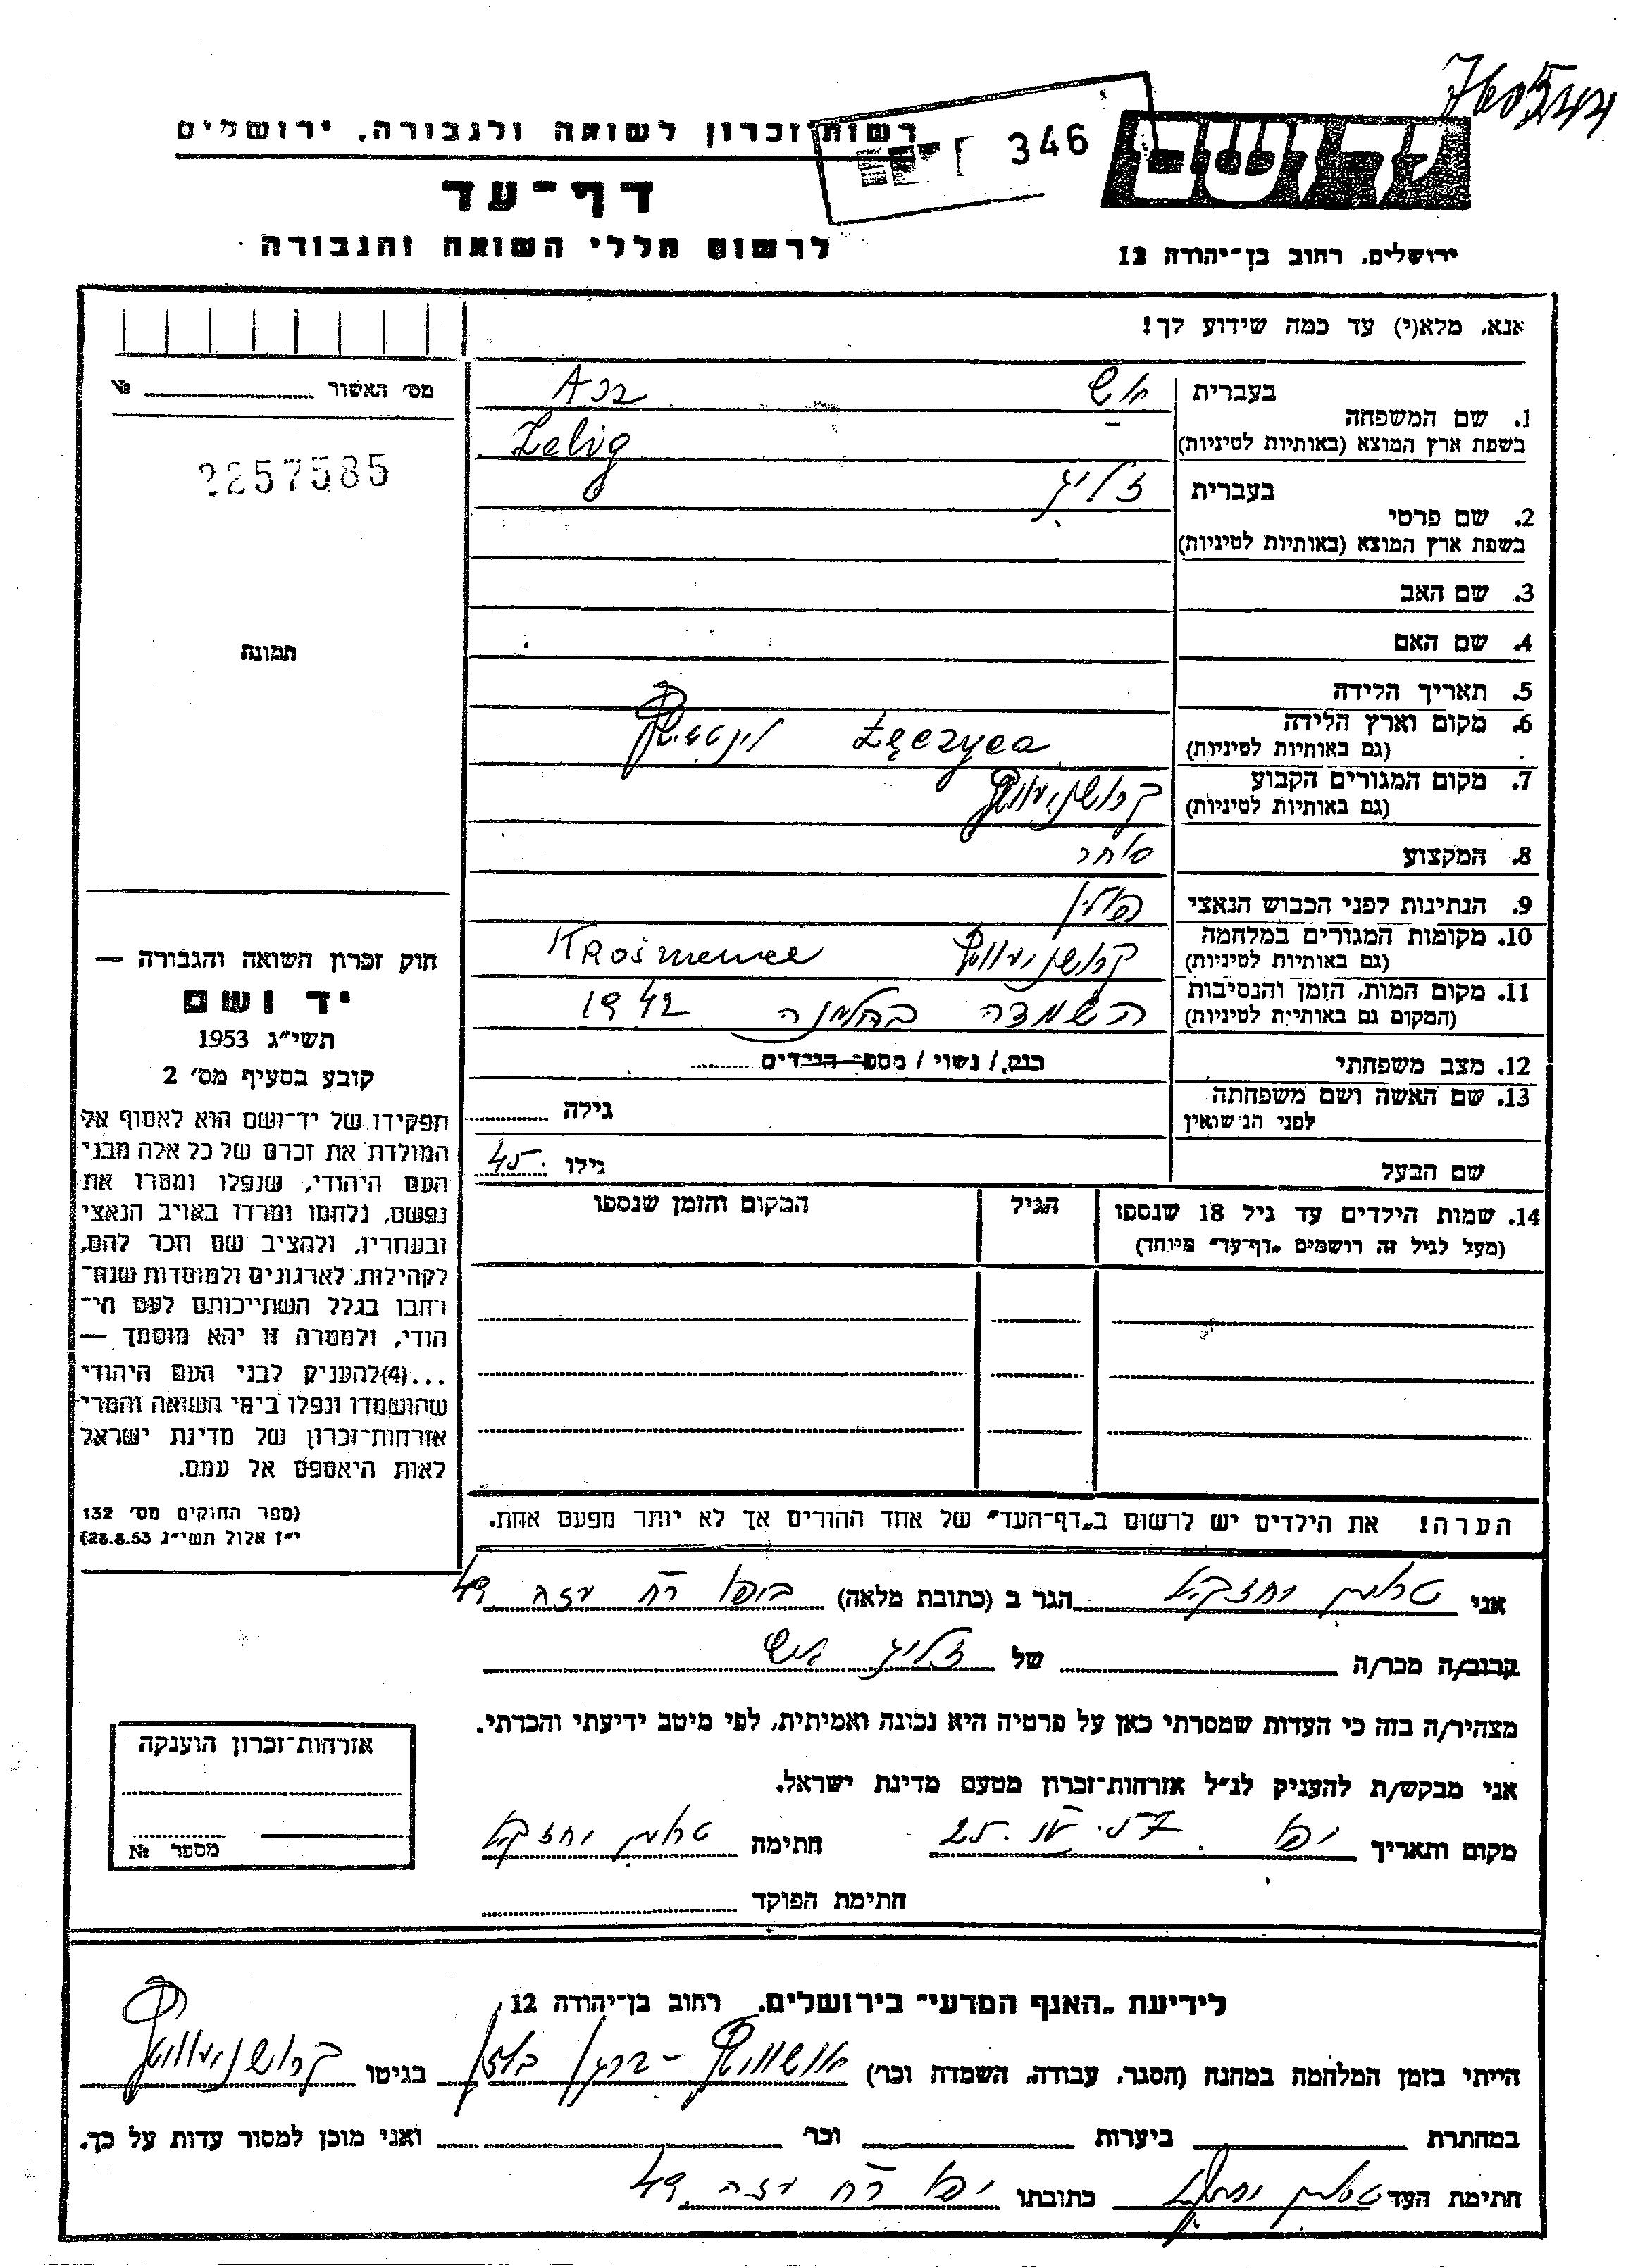 760544
רשות זכרון לשואה ולגבורה. ירושלים
346
יד ושם
דף־עד
לרשום חללי השואה והגבורה
ירושלים. רחוב בן־יהודה 12
אנא, מלא(י) עד כמה שידוע לך!
מס׳ האשור №
2257585
תמונת
בעברית אש
1. שם המשפחה
בשפת ארץ המוצא (באותיות לטיניות)
Zelvig
בעברית זליג
2. שם פרטי
בשפת ארץ המוצא (באותיות לטיניות)
3. שם האב
4. שם האם
5. תאריך הלידה
6. מקום וארץ הלידה
(גם באותיות לטיניות) Łęczyca
7. מקום המגורים הקבוע
(גם באותיות לטיניות) קרושנויעוויץ
8. המקצוע סוחר
9. הנתינות לפני הכבוש הנאצי פולין
10. מקומות המגורים במלחמה
(גם באותיות לטיניות) קרושנויעוויץ
11. מקום המות, הזמן והנסיבות
(המקום גם באותיות לטיניות) השמדה בחלמנה 1942
12. מצב משפחתי רנק / נשוי / מספר הילדים
13. שם האשה ושם משפחתה
לפני הנישואין
גילה
שם הבעל גילו 45
14. שמות הילדים עד גיל 18 שנספו
(מעל לגיל זה רושמים „דף־עד״ מיוחד)
הגיל
המקום והזמן שנספו
הערה! את הילדים יש לרשום ב„דף־העד״ של אחד ההורים אך לא יותר מפעם אחת.
חוק זכרון השואה והגבורה —
יד ושם
תשי״ג 1953
קובע בסעיף מס׳ 2
תפקידו של יד־ושם הוא לאסוף אל
המולדת את זכרם של כל אלה מבני
העם היהודי, שנפלו ומסרו את
נפשם, נלחמו ומרדו באויב הנאצי
ובעוזריו, ולהציב שם וזכר להם,
לקהילות, לארגונים ולמוסדות שנח־
רחבו בגלל השתייכותם לעם הי־
הודי, ולמטרה זו יהא מוסמך —
...(4)להעניק לבני העם היהודי
שהושמדו ונפלו בימי השואה והמרי
אזרחות־זכרון של מדינת ישראל
לאות היאספם אל עמם.
(ספר החוקים מס׳ 132
י״ז אלול תשי״ג 28.8.53)
אני הגר ב (כתובת מלאה) רח עזה 49
קרוב/ה מכר/ה של זליג אש
מצהיר/ה בזה כי העדות שמסרתי כאן על פרטיה היא נכונה ואמיתית, לפי מיטב ידיעתי והכרתי.
אני מבקש/ת להעניק לנ״ל אזרחות־זכרון מטעם מדינת ישראל.
מקום ותאריך יפו 25. VI. 57 חתימה
חתימת הפוקד
אזרחות־זכרון הוענקה
מספר №
לידיעת „האגף המדעי״ בירושלים. רחוב בן־יהודה 12
הייתי בזמן המלחמה במחנה (הסגר, עבודה, השמדה וכר׳) אושוויץ - ברגן בלזן בגיטו קרושנויעוויץ
במחתרת ביערות וכר׳ ואני מוכן למסור עדות על כך.
חתימת העד כתובתו יפו רח עזה 49